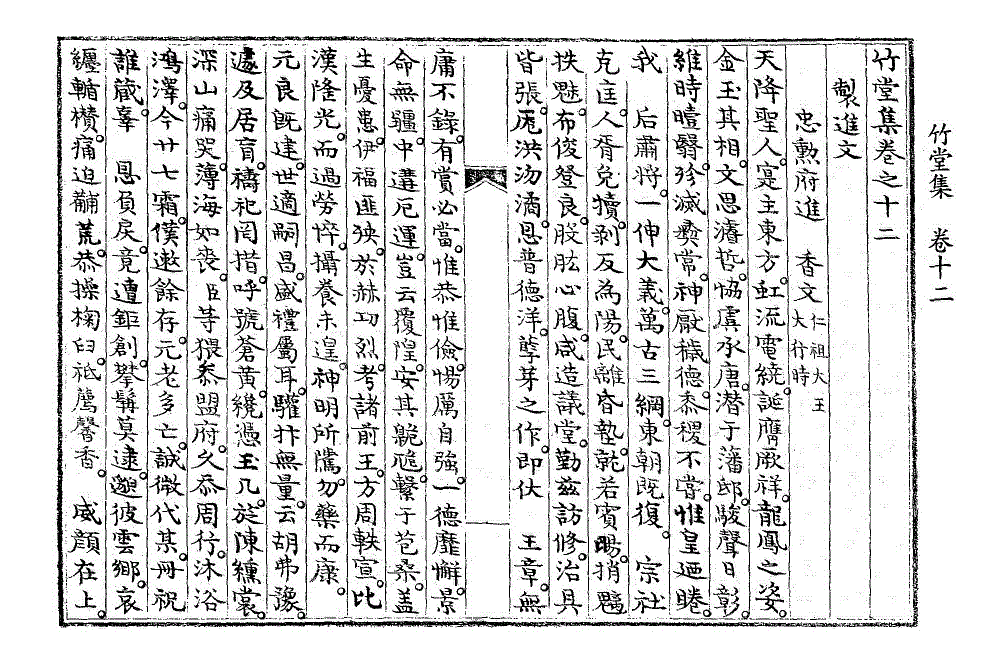 竹堂集 卷十二
竹堂集卷之十二
製進文
忠勲府進 香文 仁祖大王大行時
天降聖人寔主東方虹流電繞誕膺厥祥龍鳳之姿
金玉其相文思濬哲恊虞承唐潜于藩邸駿聲日彰
維時曀翳殄滅彜常神厭穢德黍稷不甞惟皇廼睠
我 后肅將一伸大義萬古三綱東朝既復 宗社
克匡人胥兌犢剥反為陽民離昏墊乾若賓暘捎魑
抶魅布俊登良股肱心腹咸造議堂勤兹訪修治具
皆張厖洪汤潏恩普德洋孽芽之作即伏 王章無
庸不錄有賞必當惟恭惟儉惕厲自強一德靡懈景
命無疆中遘厄運豈云覆隍安其臲卼繫于苞桑盖
生憂患伊福匪殃於赫功烈考諸前王方周軼宣比
漢隆光而過勞悴攝養未遑神明所隲勿藥而康
元良既建世適嗣昌盛禮屬耳驩抃無量云胡弗豫
遽及居肓禱祀罔措呼號蒼黃纔憑玉几旋陳纁裳
深山痛哭薄海如喪臣等猥忝盟府久忝周行沐浴
鴻澤今廿七霜僕遬餘存元老多亡誠微代某冊祝
誰蕆辜 恩負戾竟遭鉅創攀髯莫逮邈彼雲鄉哀
纏輴欑痛迫黼荒恭操椈臼祗薦馨香 威顏在上